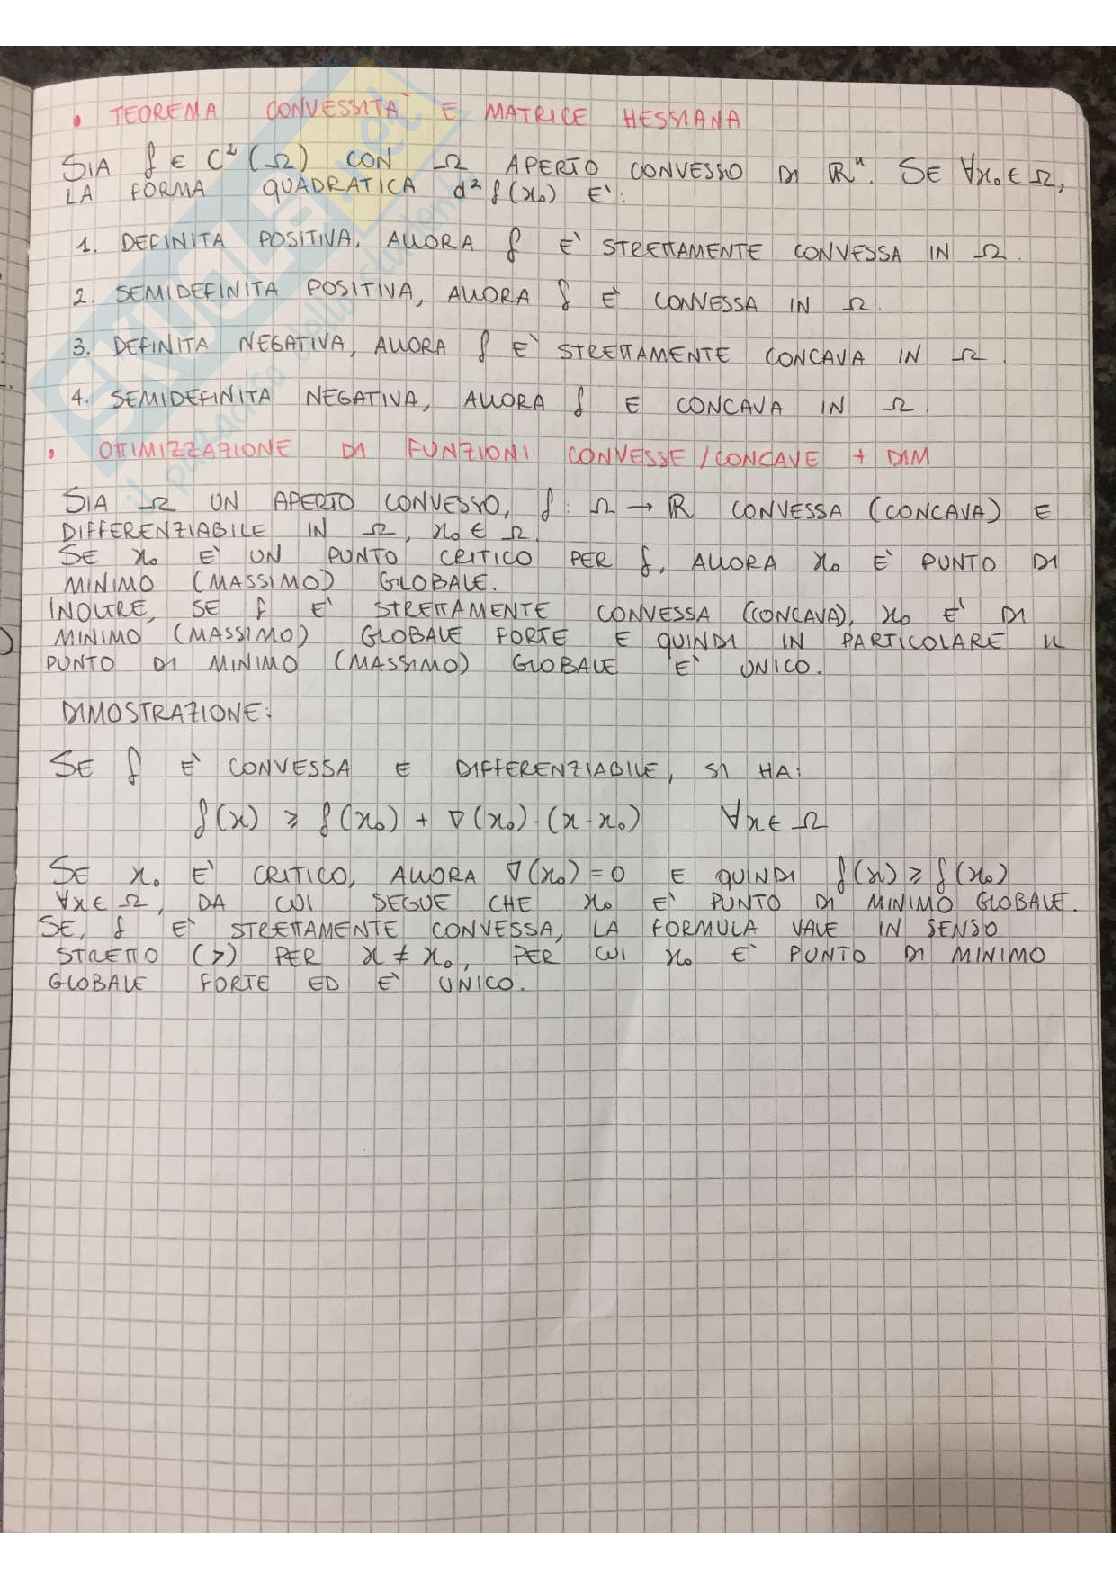 • TEOREMA CONVESSITÀ E MATRICE HESSIANA
SIA f ∈ C²(Ω) CON Ω APERTO CONVESSO DI ℝⁿ. SE ∀x₀ ∈ Ω,
LA FORMA QUADRATICA d²f(x₀) E':
1. DEFINITA POSITIVA, ALLORA f E' STRETTAMENTE CONVESSA IN Ω.
2. SEMIDEFINITA POSITIVA, ALLORA f E' CONVESSA IN Ω.
3. DEFINITA NEGATIVA, ALLORA f E' STRETTAMENTE CONCAVA IN Ω.
4. SEMIDEFINITA NEGATIVA, ALLORA f E CONCAVA IN Ω.
• OTTIMIZZAZIONE DI FUNZIONI CONVESSE/CONCAVE + DIM
SIA Ω UN APERTO CONVESSO, f: Ω → ℝ CONVESSA (CONCAVA) E
DIFFERENZIABILE IN Ω, x₀ ∈ Ω.
SE x₀ E' UN PUNTO CRITICO PER f, ALLORA x₀ E' PUNTO DI
MINIMO (MASSIMO) GLOBALE.
INOLTRE, SE f E' STRETTAMENTE CONVESSA (CONCAVA), x₀ E' DI
MINIMO (MASSIMO) GLOBALE FORTE E QUINDI IN PARTICOLARE IL
PUNTO DI MINIMO (MASSIMO) GLOBALE E' UNICO.
DIMOSTRAZIONE:
SE f E' CONVESSA E DIFFERENZIABILE, SI HA:
f(x) ≥ f(x₀) + ∇(x₀)·(x-x₀) ∀x ∈ Ω
SE x₀ E' CRITICO, ALLORA ∇(x₀)=0 E QUINDI f(x) ≥ f(x₀)
∀x ∈ Ω, DA CUI SEGUE CHE x₀ E' PUNTO DI MINIMO GLOBALE.
SE, f E' STRETTAMENTE CONVESSA, LA FORMULA VALE IN SENSO
STRETTO (>) PER x ≠ x₀, PER CUI x₀ E' PUNTO DI MINIMO
GLOBALE FORTE ED E' UNICO.